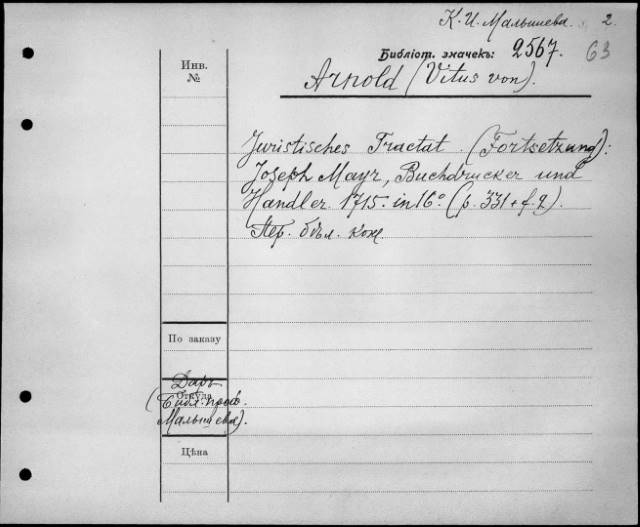 К. И. Малышева. 2.
Библіот. значекъ: 2567. 63
Инв.
№
Arnold (Vitus von).
Juristisches Tractat. (Fortsetzung):
Joseph Mayr, Buchdrucker und
Handler. 1715. in 16° (p. 331 + f. 2).
Пер. бѣл. кож.
По заказу
Даръ
Откуда
(Библ. проф.
Малышева).
Цѣна